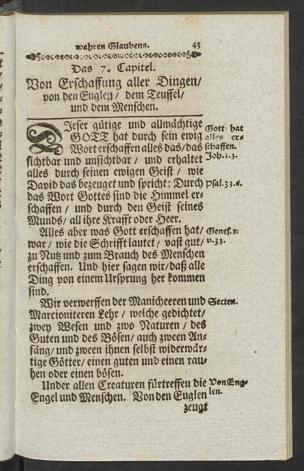 wahren Glaubens. 45
Das 7. Capitel.
Von Erschaffung aller Dingen/
von den Englen / dem Teuffel/
und dem Menschen.
Dieser gütige und allmächtige
GOTT hat durch sein ewig
Wort erschaffen alles das/ das
sichtbar und unsichtbar / und erhaltet
alles durch seinen ewigen Geist / wie
David das bezeuget und spricht: Durch
das Wort Gottes sind die Himmel er-
schaffen / und durch den Geist seines
Munds/ all ihre Krafft oder Heer.
Alles aber was Gott erschaffen hat/
war / wie die Schrifft lautet / vast gut/
zu Nutz und zum Brauch des Menschen
erschaffen. Und hier sagen wir/ daß alle
Ding von einem Ursprung her kommen
sind.
Wir verwerffen der Manicheeren und
Marcioniteren Lehr / welche gedichtet/
zwey Wesen und zwo Naturen / des
Guten und des Bösen/ auch zween An-
fäng/ und zween ihnen selbst widerwär-
tige Götter/ einen guten und einen rau-
hen oder einen bösen.
Under allen Creaturen fürtreffen die
Engel und Menschen. Von den Englen
zeugt
Gott hat
alles er-
schaffen.
Joh. 1. 3.
Psal. 33. 6.
Genes. 1.
v. 33.
Secten.
Von Eng-
len.